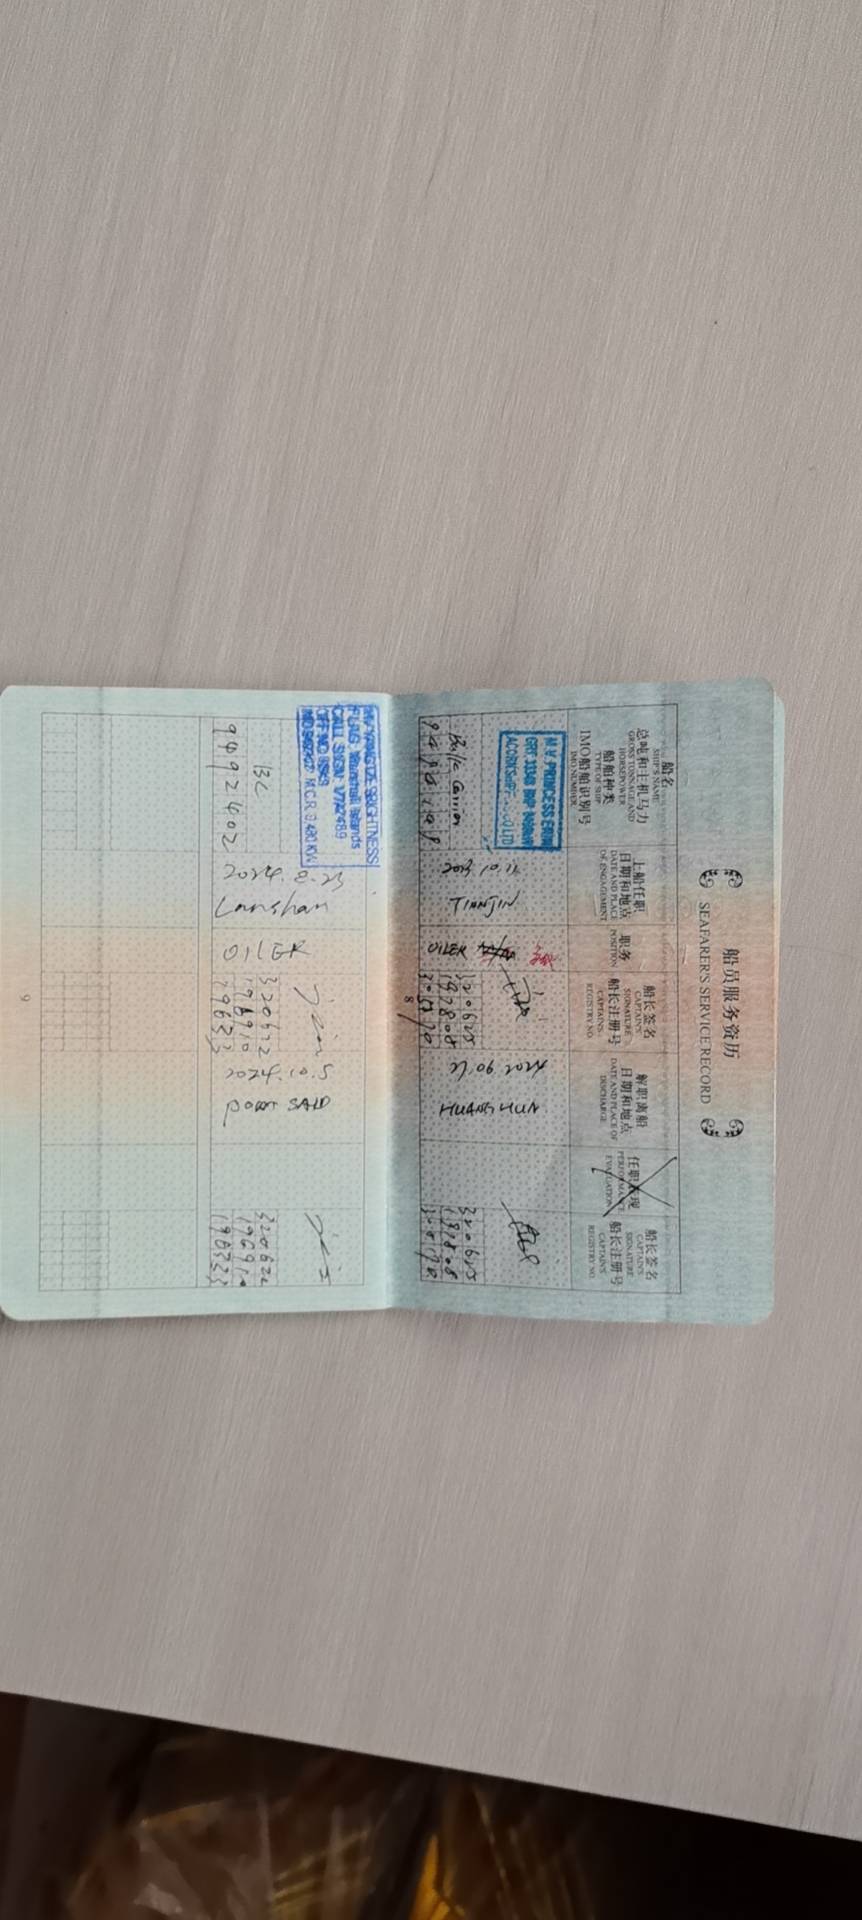 船员服务资历
SEAFARER'S SERVICE RECORD
船名
SHIP'S NAME
总吨和主机马力
GROSS TONNAGE AND
HORSEPOWER
船舶种类
TYPE OF SHIP
IMO船舶识别号
IMO NUMBER
上船任职
日期和地点
DATE AND PLACE
OF ENGAGEMENT
职务
POSITION
船长签名
CAPTAIN'S
SIGNATURE
船长注册号
CAPTAIN'S
REGISTRY NO.
解职离船
日期和地点
DATE AND PLACE OF
DISCHARGE
任职表现
PERFORMANCE
EVALUATION
船长签名
CAPTAIN'S
SIGNATURE
船长注册号
CAPTAIN'S
REGISTRY NO.
M.V. PRINCESS
Bulk Carrier
TIANJIN
OILER
320625
27.06.2024
320625
8
FLAG: Marshall Islands
CALL SIGN: V7A2489
M.C.R 9,480 KW
BC
9492402
Lanshan
OILER
320622
196910
2024.10.5
PORT SAID
320622
196910
9